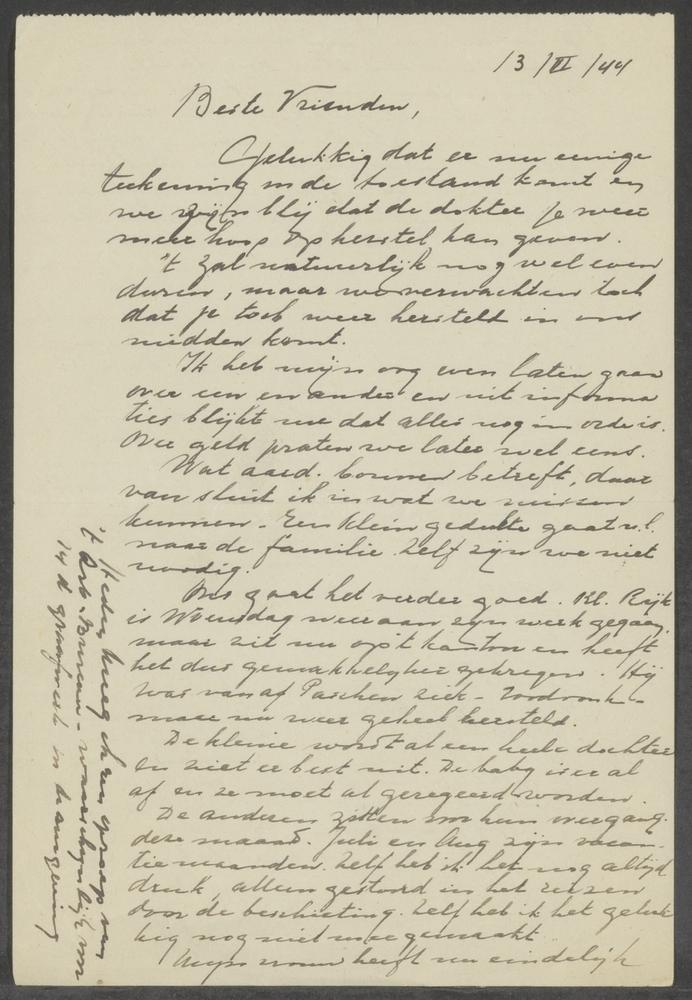 13/VI/44
Beste Vrienden,
Gelukkig dat er nu eenige
teekening in de toestand komt en
we zijn blij dat de dokter je weer
meer hoop op herstel kan geven.
't Zal natuurlijk nog wel even
duren, maar we verwachten toch
dat je toch weer hersteld in ons
midden komt.
Ik heb mijn oog even laten gaan
over een en ander en uit informa
ties blijkt me dat alles nog in orde is.
Over geld praten we later wel eens.
Wat aard. bonnen betreft, daar
van sluit ik in wat we missen
kunnen. Een klein gedeelte gaat n.l.
naar de familie. Zelf zijn we niet
noodig.
Ons gaat het verder goed. Kl. Rijk
is Woensdag weer aan zijn werk gegaan,
maar zit nu op 't kantoor en heeft
het dus gemakkelijker gekregen. Hij
was vanaf Paschen ziek -
maar nu weer geheel hersteld.
De kleine wordt al een heele dochter
en ziet er best uit. De baby is er al
af en ze moet al geregeerd worden.
De anderen zitten voor hun overgang.
deze maand. Juli en Aug zijn vacan-
tiemaanden. Zelf heb ik het nog altijd
druk, alleen gestoord in het reizen
door de beschieting. Zelf heb ik het geluk
kig nog niet meegemaakt.
Mijn vrouw heeft nu eindelijk
Heden kreeg ik een oproep van
't Arb. Bureau - waarschijnlijk voor
14 d graafwerk in de omgeving